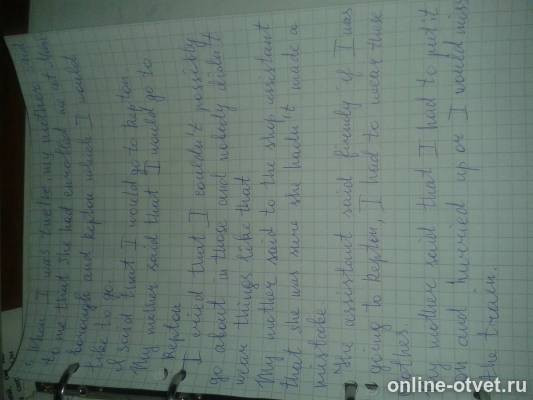 When I was twelve, my mother said
to me that she had enrolled me at Marl
borough and Repton which I would
like to go.
I said that I would go to Repton
My mother said that I would go to
Repton
I cried that I couldn't possibly
go about in those and nobody didn't
wear things like that
My mother said to the shop assistant
that she was sure she hadn't made a
mistake
The assistant said firmly if I was
going to Repton, I had to wear these
clothes
My mother said that I had to put it
on and hurried up or I would miss
the train.
online-otvet.ru